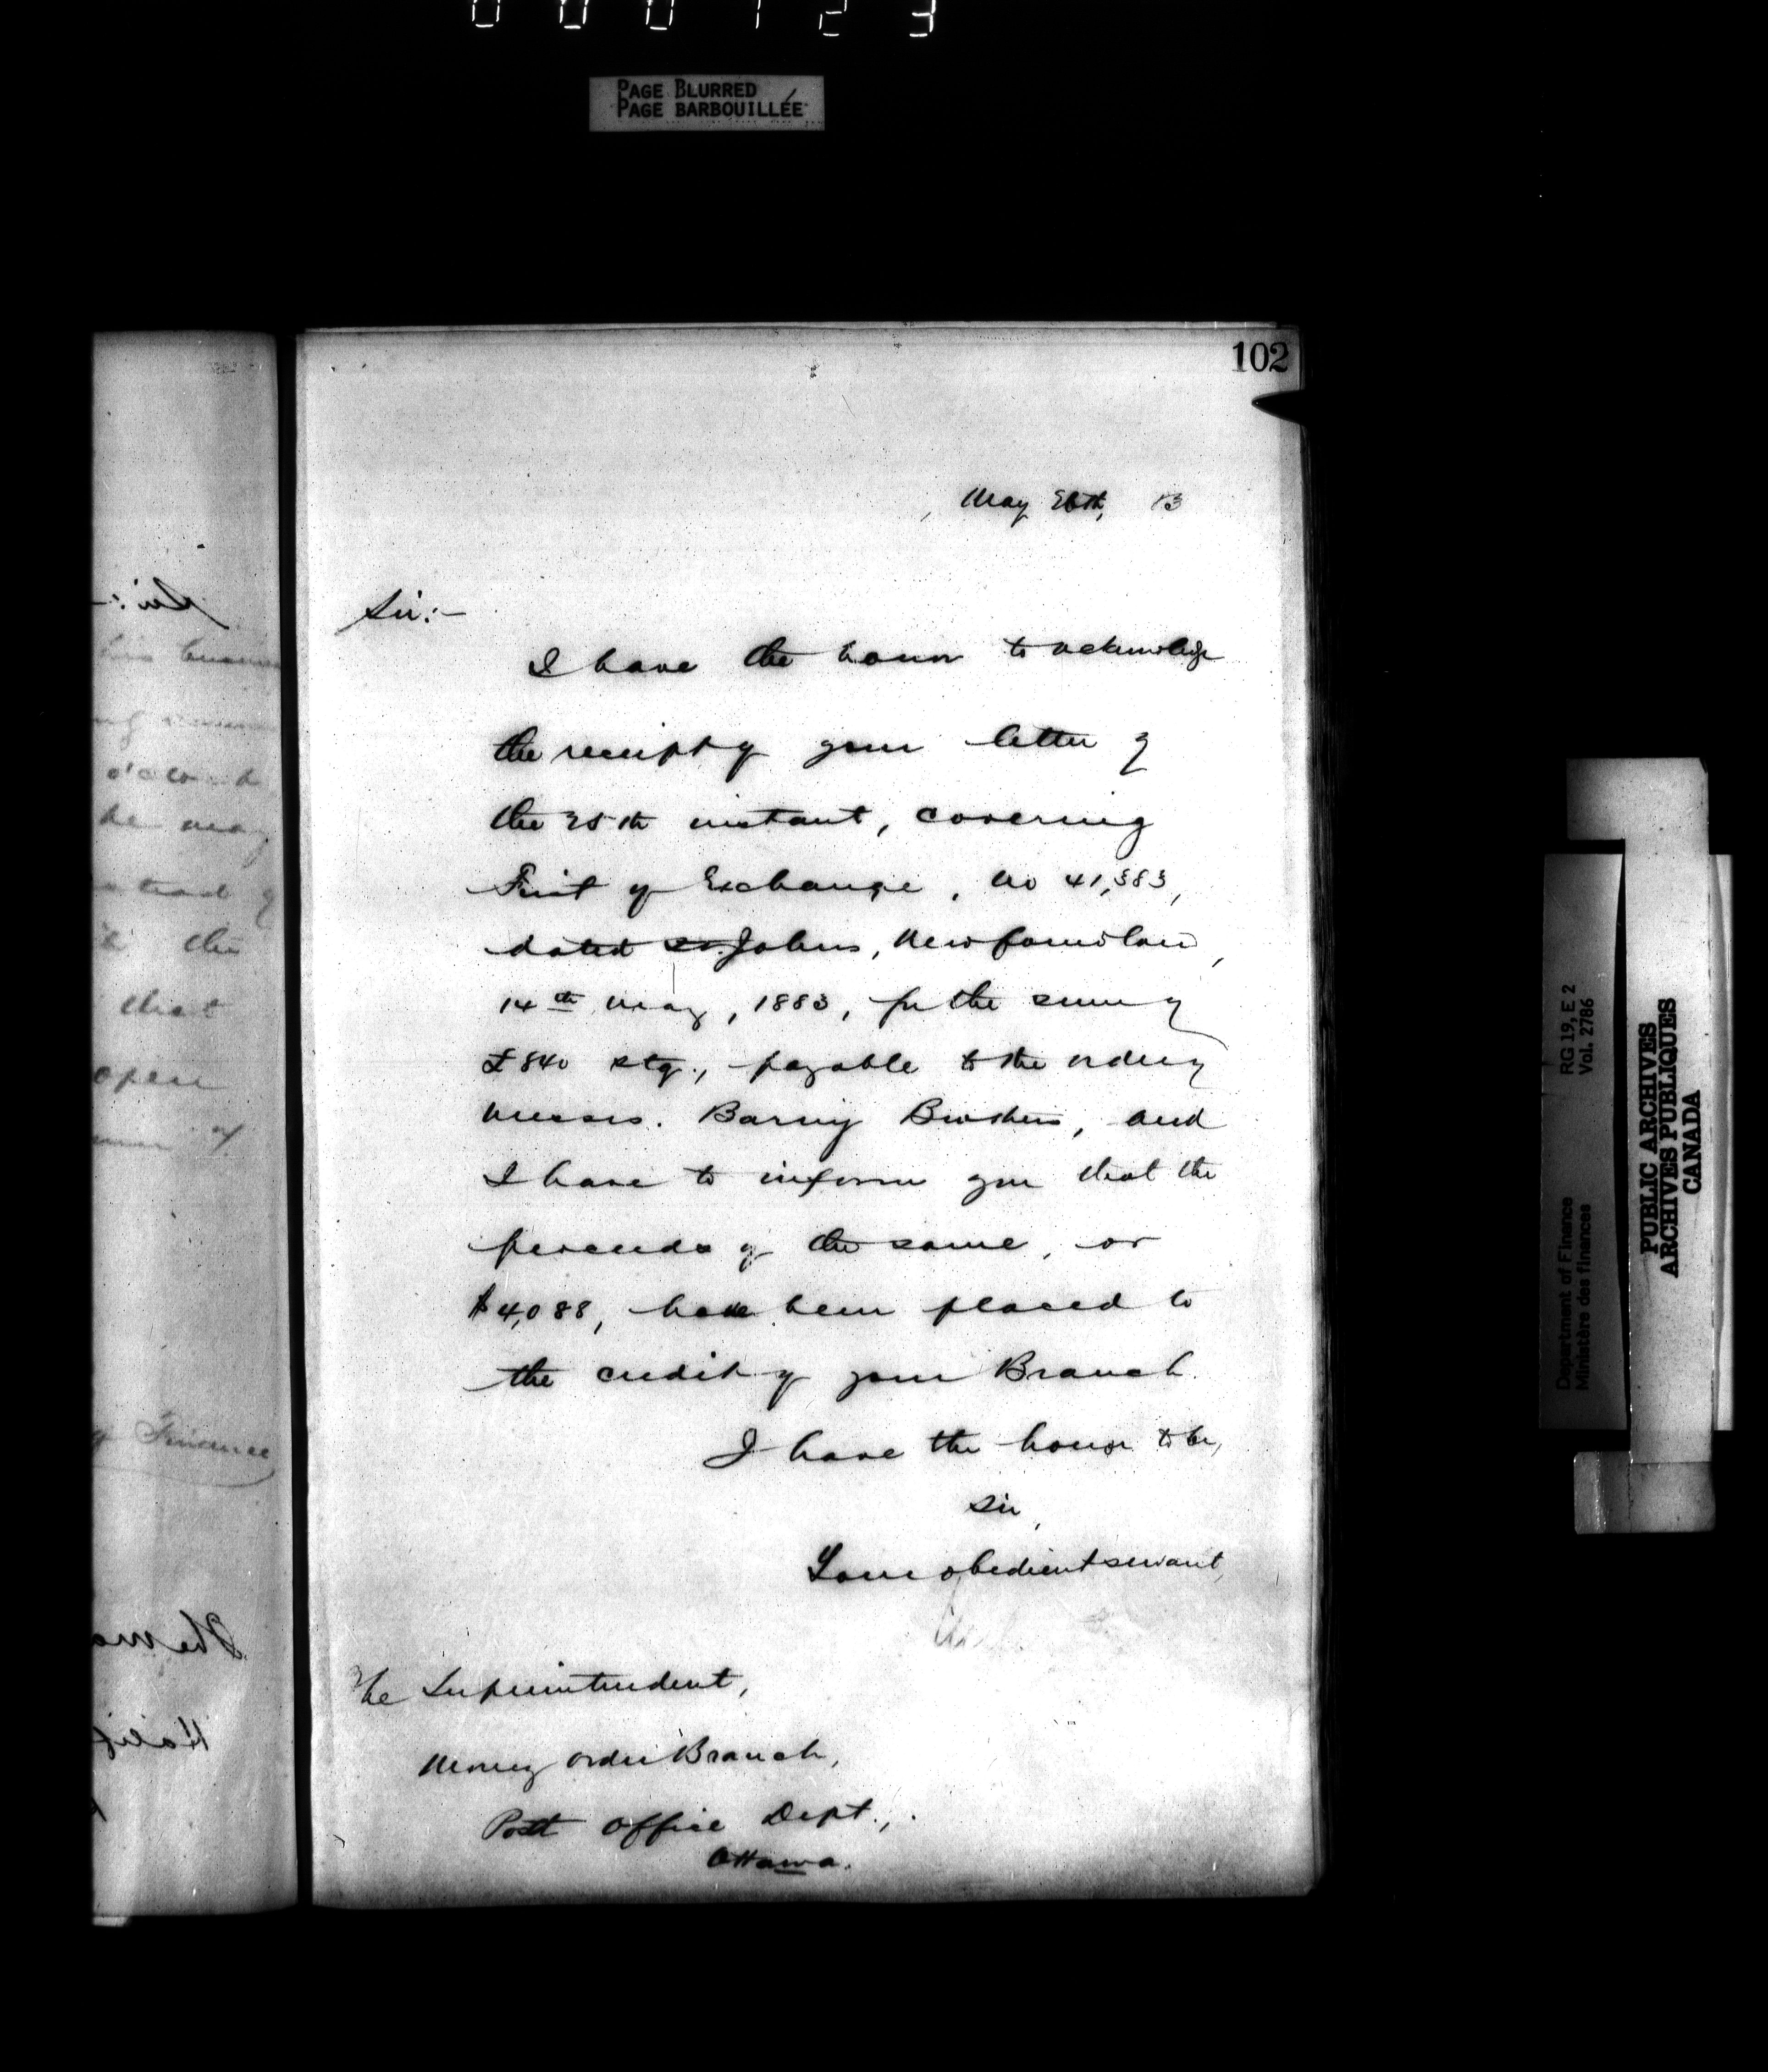 000123
PAGE BLURRED
PAGE BARBOUILLÉE
102
May 26th, 83
Sir:-
I have the honor to acknowledge
the receipt of your letter of
the 25th instant, covering
First of Exchange, No 41,383,
dated St. Johns, Newfoundland,
14th May, 1883, for the sum of
£840 stg., payable to the order of
Messrs. Baring Brothers, and
I have to inform you that the
proceeds of the same, or
$4,088, have been placed to
the credit of your Branch.
I have the honor to be,
Sir,
Your obedient servant,
The Superintendent,
Money Order Branch,
Post Office Dept.,
Ottawa.
he may
instead of
the
that
open
of Finance
Department of Finance RG 19, E 2
Ministère des finances Vol. 2786
PUBLIC ARCHIVES
ARCHIVES PUBLIQUES
CANADA